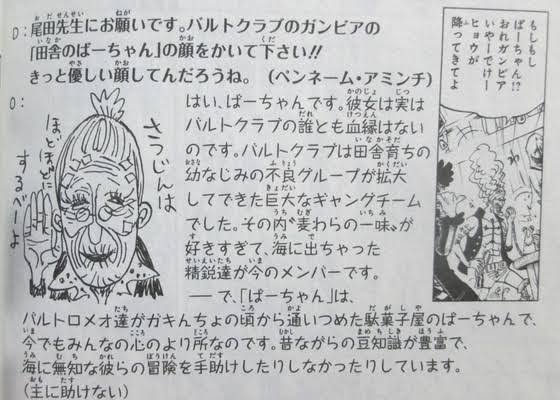 D：尾田先生にお願いです。バルトクラブのガンビアの
「田舎のばーちゃん」の顔をかいて下さい!!
きっと優しい顔してんだろうね。（ペンネーム・アミンチ）
O：
さつじんは
ほどほどに
するべーよ
はい、ばーちゃんです。彼女は実は
バルトクラブの誰とも血縁はない
のです。バルトクラブは田舎育ちの
幼なじみの不良グループが拡大
してできた巨大なギャングチーム
でした。その内"麦わらの一味"が
好きすぎて、海に出ちゃった
精鋭達が今のメンバーです。
──で、「ばーちゃん」は、
バルトロメオ達がガキんちょの頃から通いつめた駄菓子屋のばーちゃんで、
今でもみんなの心のより所なのです。昔ながらの豆知識が豊富で、
海に無知な彼らの冒険を手助けしたりしなかったりしています。
（主に助けない）
もしもし
ばーちゃん!?
おれガンビア
いやーでけー
ヒョウが
降ってきてよ